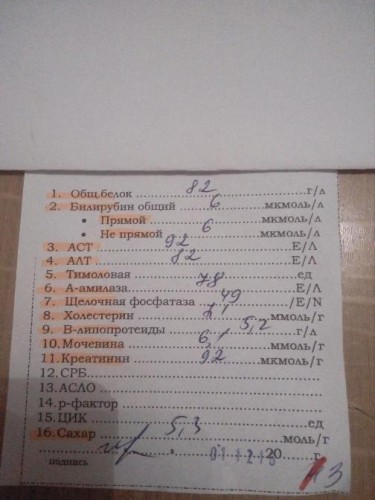 1. Общ.белок 82 г/л
2. Билирубин общий 6 мкмоль/л
• Прямой мкмоль/л
• Не прямой 6 мкмоль/л
3. АСТ 92 Е/Л
4. АЛТ 82 Е/Л
5. Тимоловая ед
6. А-амилаза 78 Е/Л
7. Щелочная фосфатаза 49 /E/N
8. Холестерин ммоль/г
9. В-липопротеиды 5,2 г/л
10. Мочевина 6,1 ммоль/г
11. Креатинин 92 мкмоль/г
12. СРБ
13. АСЛО
14. р-фактор
15. ЦИК ед
16. Сахар 5,3 моль/г
20 г
подпись
13